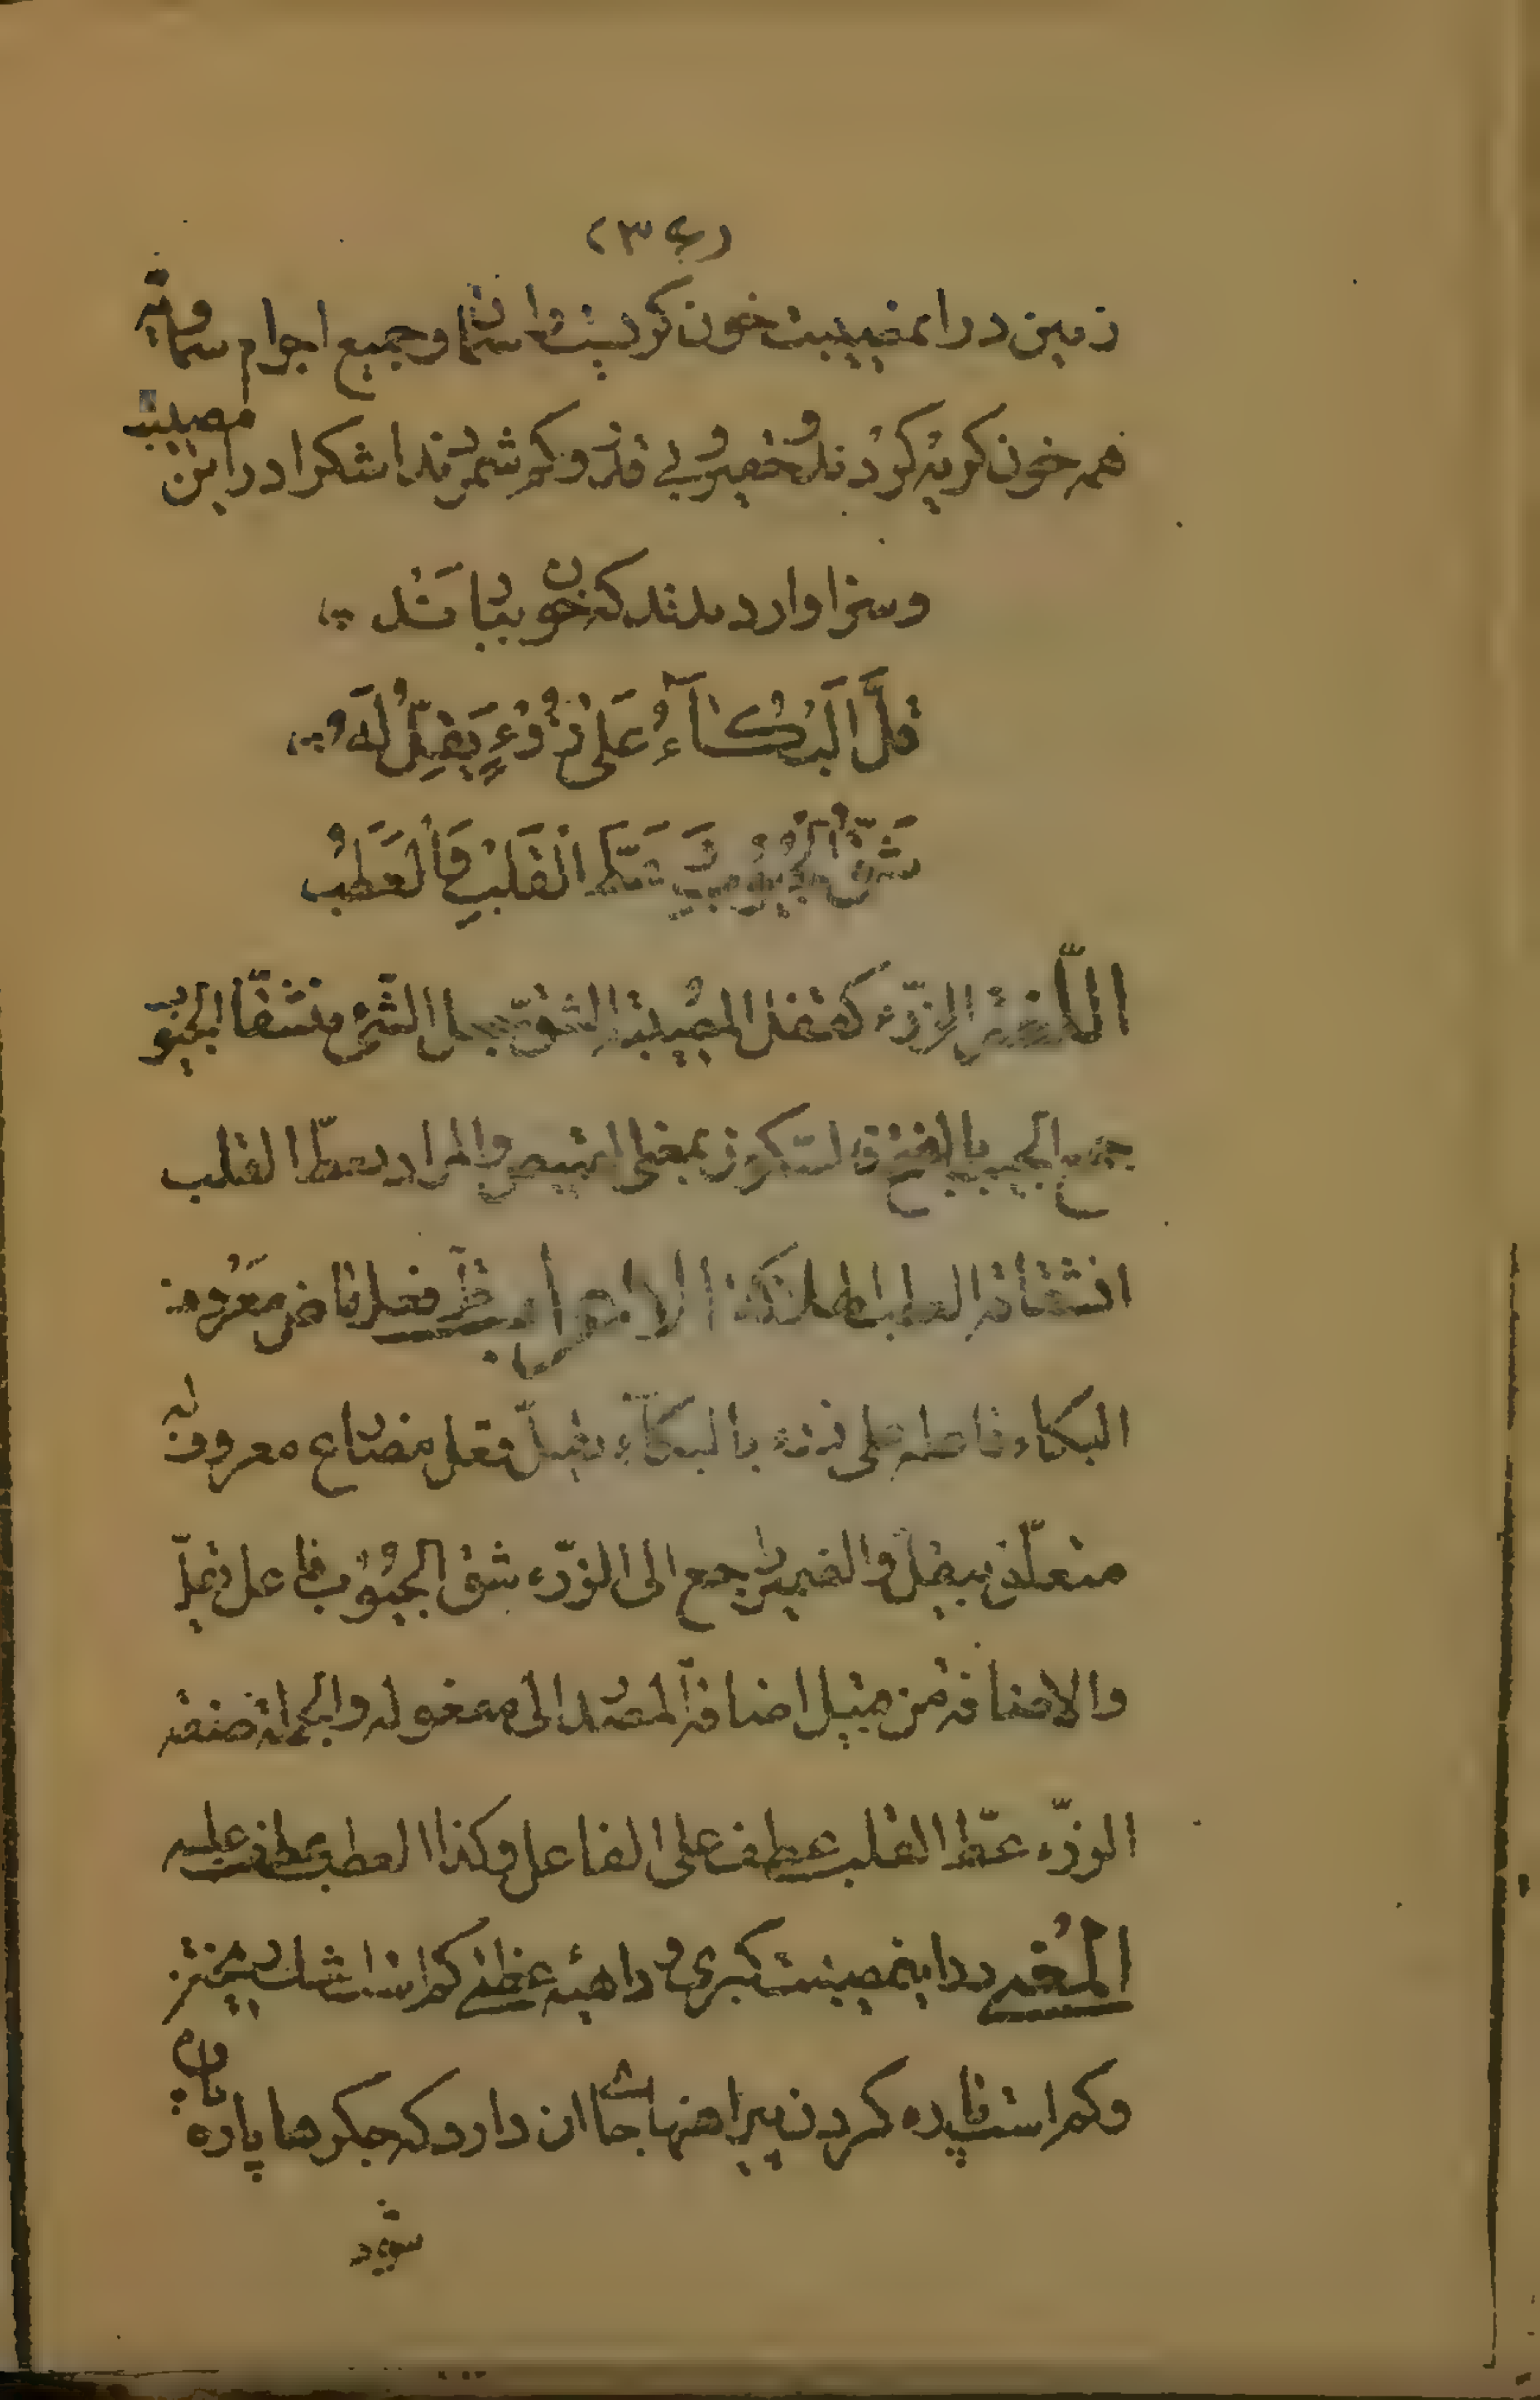 (۳۶)
زمین در اینمصیبت خون گریست و آسمان و جمیع اجرام سماویه
همه خون گریه کردند و حقیر و بی قدر و کم شمردند اشک را در این مصیبت
و سزاوار دیدند که خون ببارند
قَلَّ الْبُكَآءُ عَلَى رُزْءٍ يَقِلُّ لَهُ
شَقُّ الْجُيُوبِ وَ عَطُّ الْقَلْبِ وَالْعَطَبُ
اللّغة الرّزء كقفل المصيبة الشقّ الجيوب
جمع الجيب بالفتح فالسّكون بمعنى القميص والمراد بعطّ القلب
انشقاقه العطب الهلكة الاعراب قلّ فعل ماض معروف
البكاء فاعله على رزء بالبكاء يقلّ فعل مضارع معروف له
متعلّق بيقلّ والضمير راجع الى الرّزء شقّ الجيوب فاعل يقلّ
والاضافة من قبيل اضافة المصدر الى مفعوله والجملة صفة
الرّزء عطّ القلب عطف على الفاعل وكذا العطب عطف عليه
المعنى در اینمصیبت کبری و داهیه عظمی کم است اشک ریختن
و کم است پاره کردن پیراهنها جاش آن دارد که جگرها پاره پاره
شود